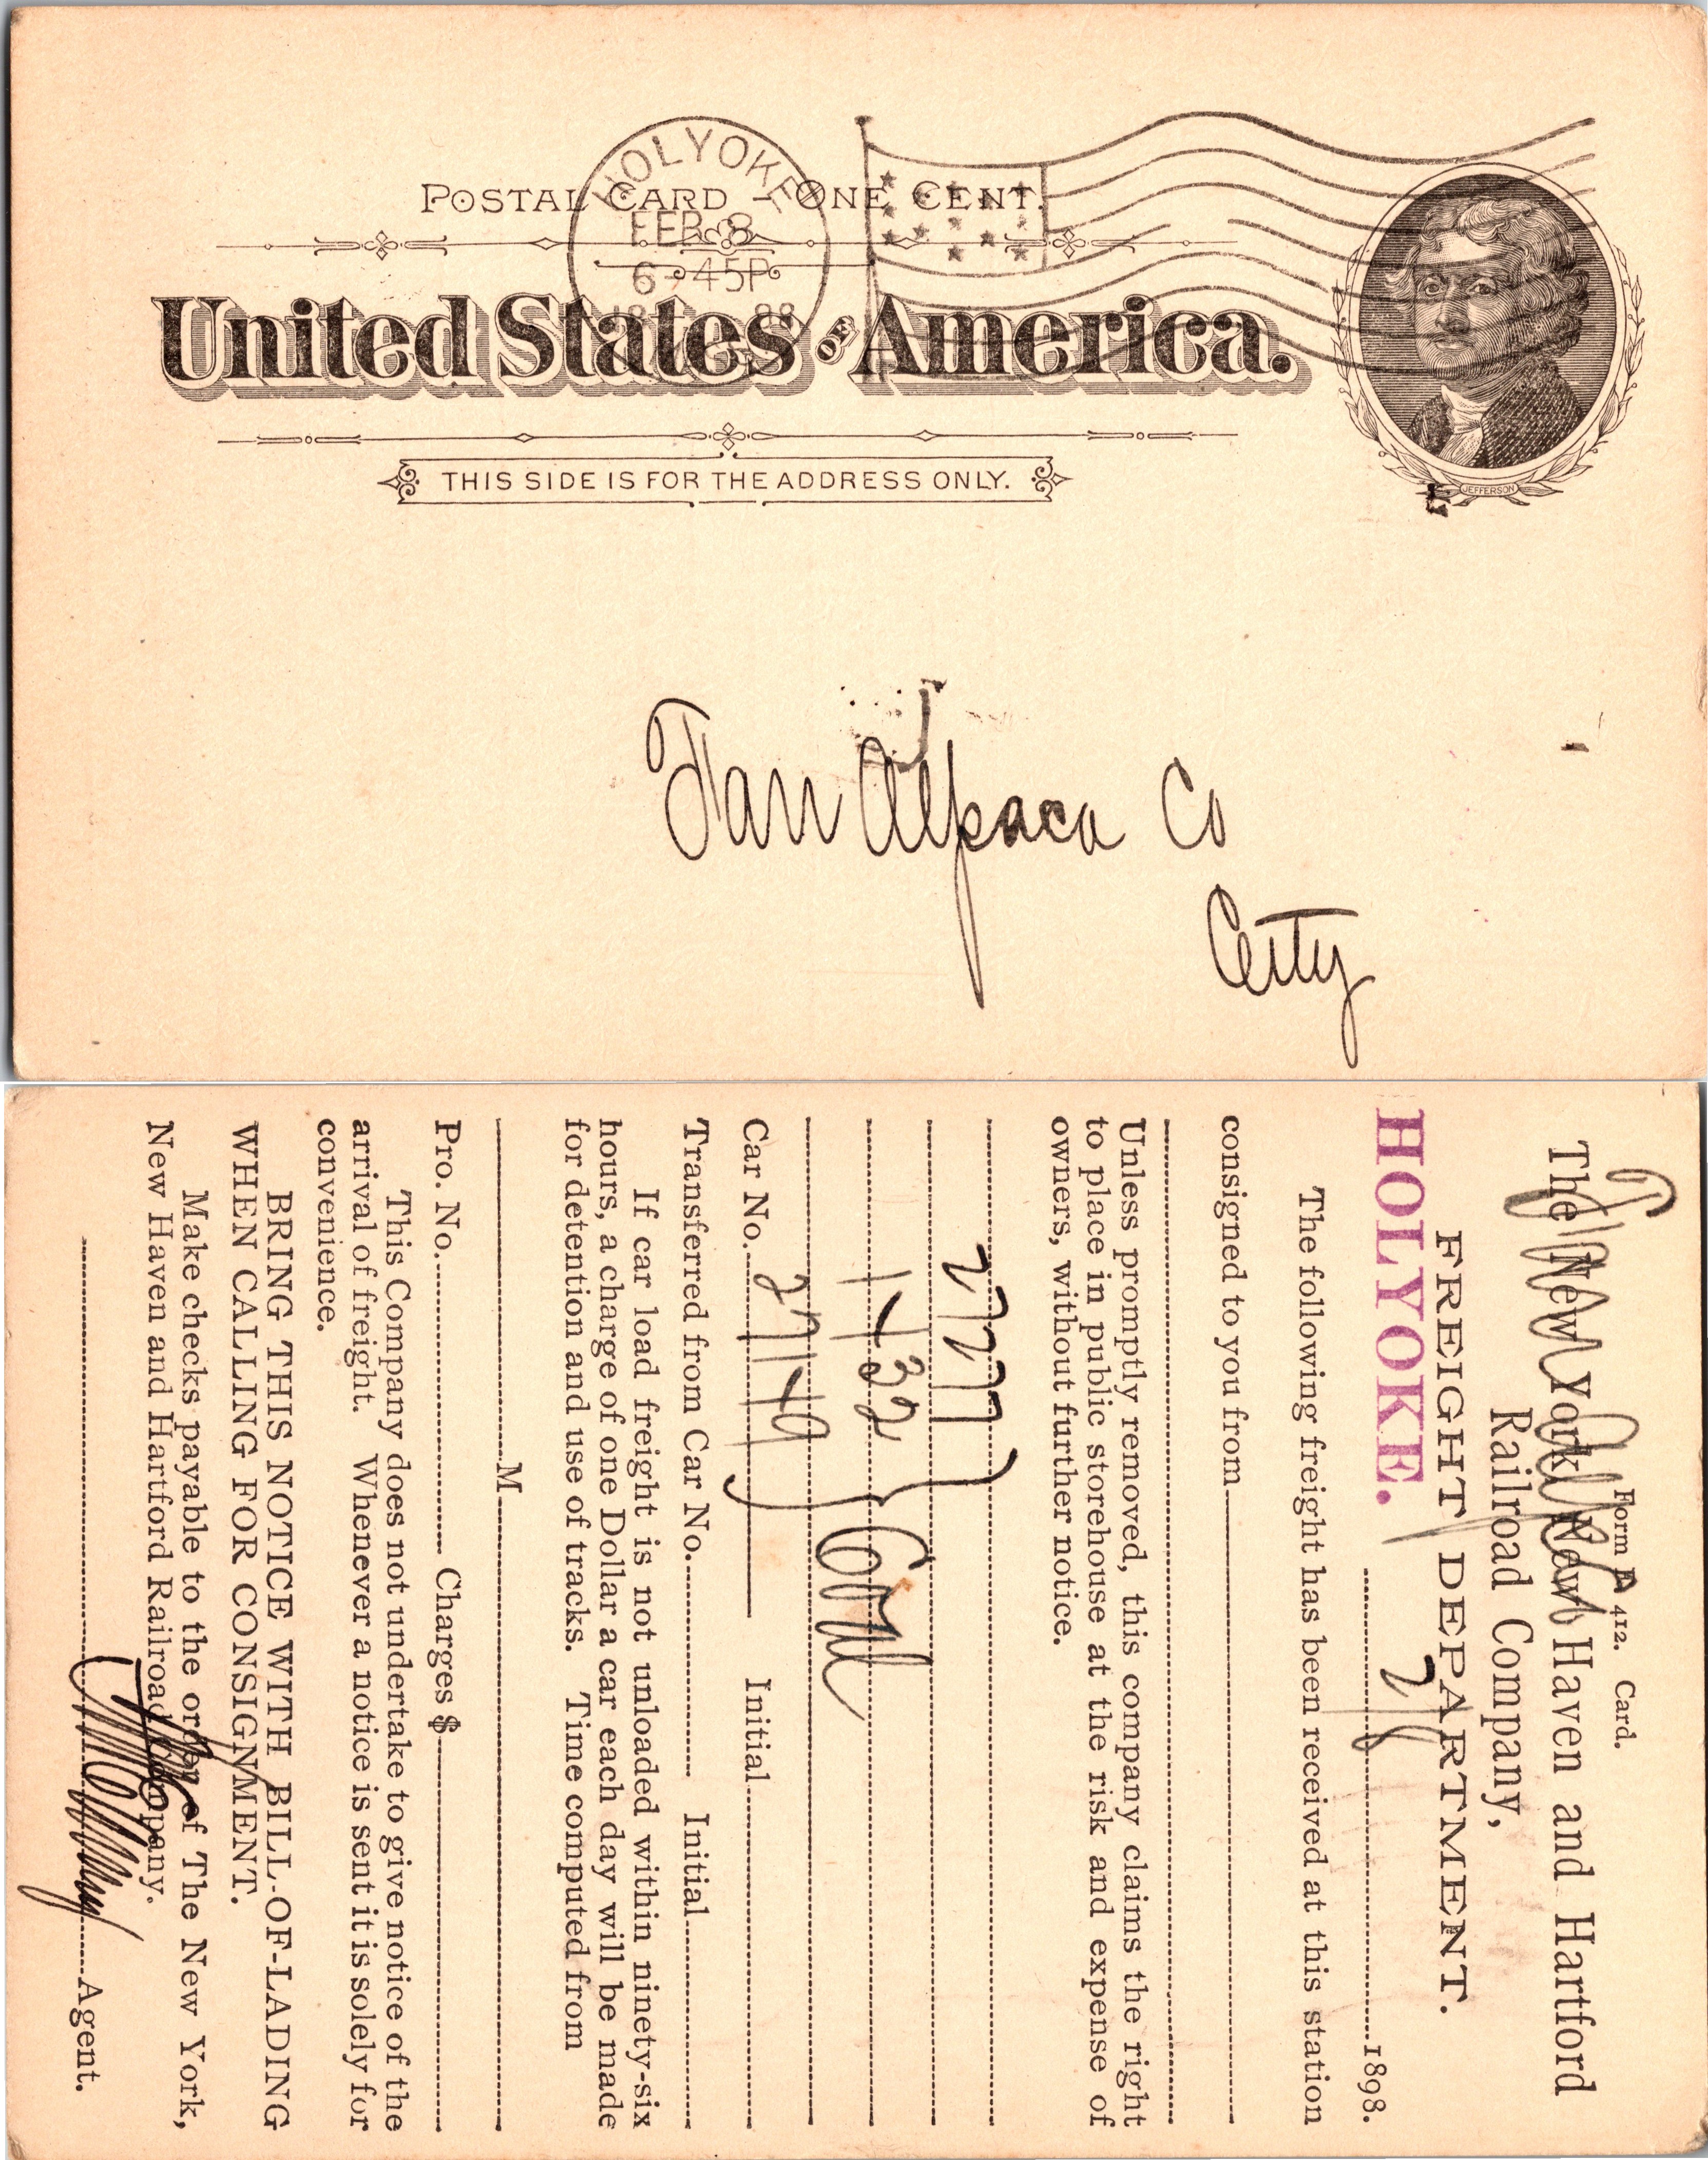 POSTAL CARD - ONE CENT.
HOLYOKE
FEB 8
6-45P
United States OF America.
JEFFERSON
THIS SIDE IS FOR THE ADDRESS ONLY.
Farr Alpaca Co
City
Form A 412. Card.
Farr Alpaca
The New York, New Haven and Hartford
Railroad Company,
FREIGHT DEPARTMENT.
HOLYOKE. 2/8 1898.
The following freight has been received at this station
consigned to you from
Unless promptly removed, this company claims the right
to place in public storehouse at the risk and expense of
owners, without further notice.
27277
1432 } Coal
Car No. 27149 Initial
Transferred from Car No. Initial
If car load freight is not unloaded within ninety-six
hours, a charge of one Dollar a car each day will be made
for detention and use of tracks. Time computed from
M
Pro. No. Charges $
This Company does not undertake to give notice of the
arrival of freight. Whenever a notice is sent it is solely for
convenience.
BRING THIS NOTICE WITH BILL-OF-LADING
WHEN CALLING FOR CONSIGNMENT.
Make checks payable to the order of The New York,
New Haven and Hartford Railroad Company.
Agent.